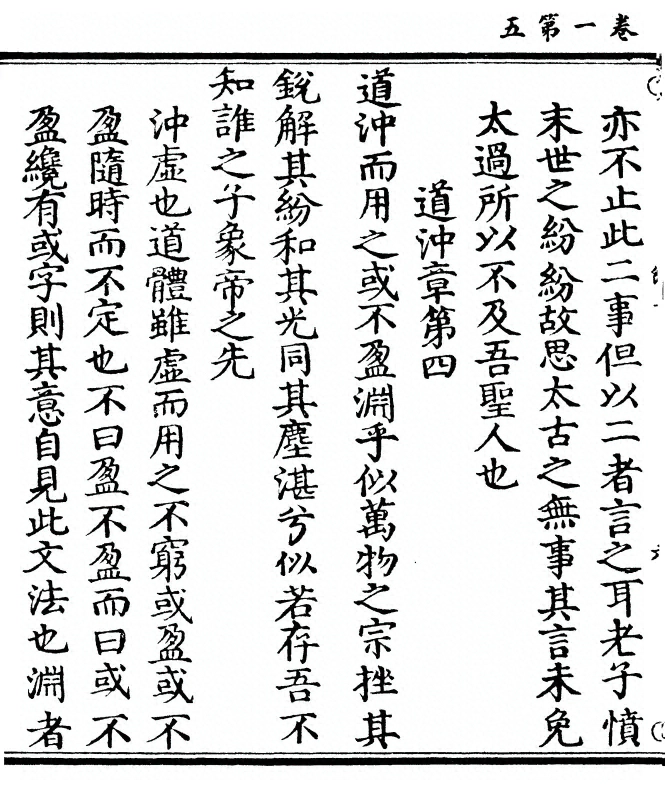 五第一卷
亦不止此二事但以二者言之耳老子憤
末世之紛紛故思太古之無事其言未免
太過所以不及吾聖人也
道沖章第四
道沖而用之或不盈淵乎似萬物之宗挫其
銳解其紛和其光同其塵湛兮似若存吾不
知誰之子象帝之先
沖虛也道體雖虛而用之不窮或盈或不
盈隨時而不定也不曰盈不盈而曰或不
盈纔有或字則其意自見此文法也淵者